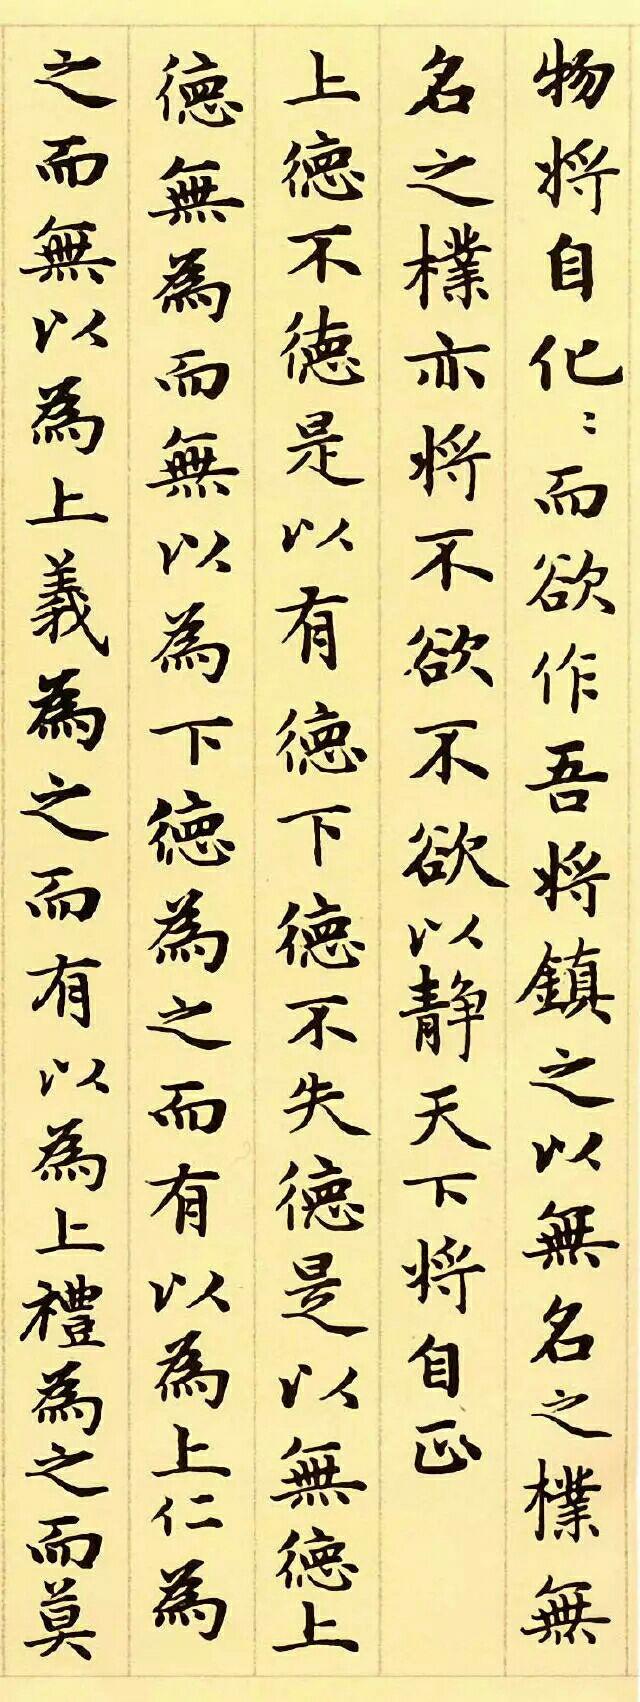 物将自化〻而欲作吾将鎮之以無名之樸無
名之樸亦将不欲不欲以静天下将自正
上德不德是以有德下德不失德是以無德上
德無為而無以為下德為之而有以為上仁為
之而無以為上義為之而有以為上禮為之而莫